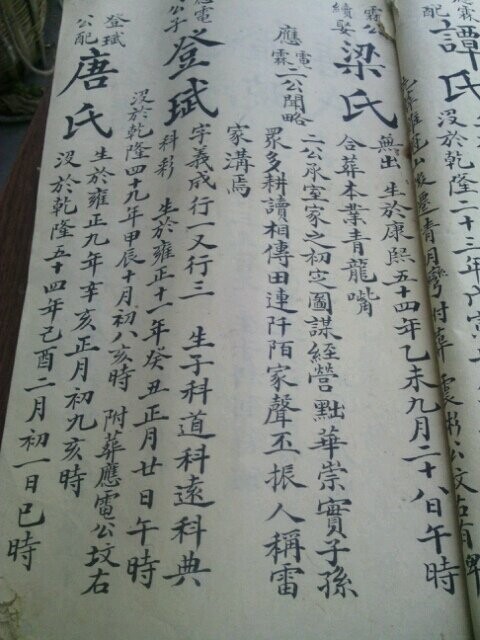 配
譚氏
沒於乾隆二十三年戊寅
霖公
續娶
梁氏
無出 生於康熙五十四年乙未九月二十八日午時
合葬本業青龍嘴
應電霖二公聞略
二公承室家之初定圖謀經營黜華崇實子孫
眾多耕讀相傳田連阡陌家聲丕振人稱雷
家溝焉
應電
公子
登珷
字義成行一又行三 生子科道科遠科典
科彩 生於雍正十一年癸丑正月廿日午時
沒於乾隆四十九年甲辰十月初八亥時 附葬應電公坟右
登珷
公配
唐氏
生於雍正九年辛亥正月初九亥時
沒於乾隆五十四年己酉二月初一日巳時